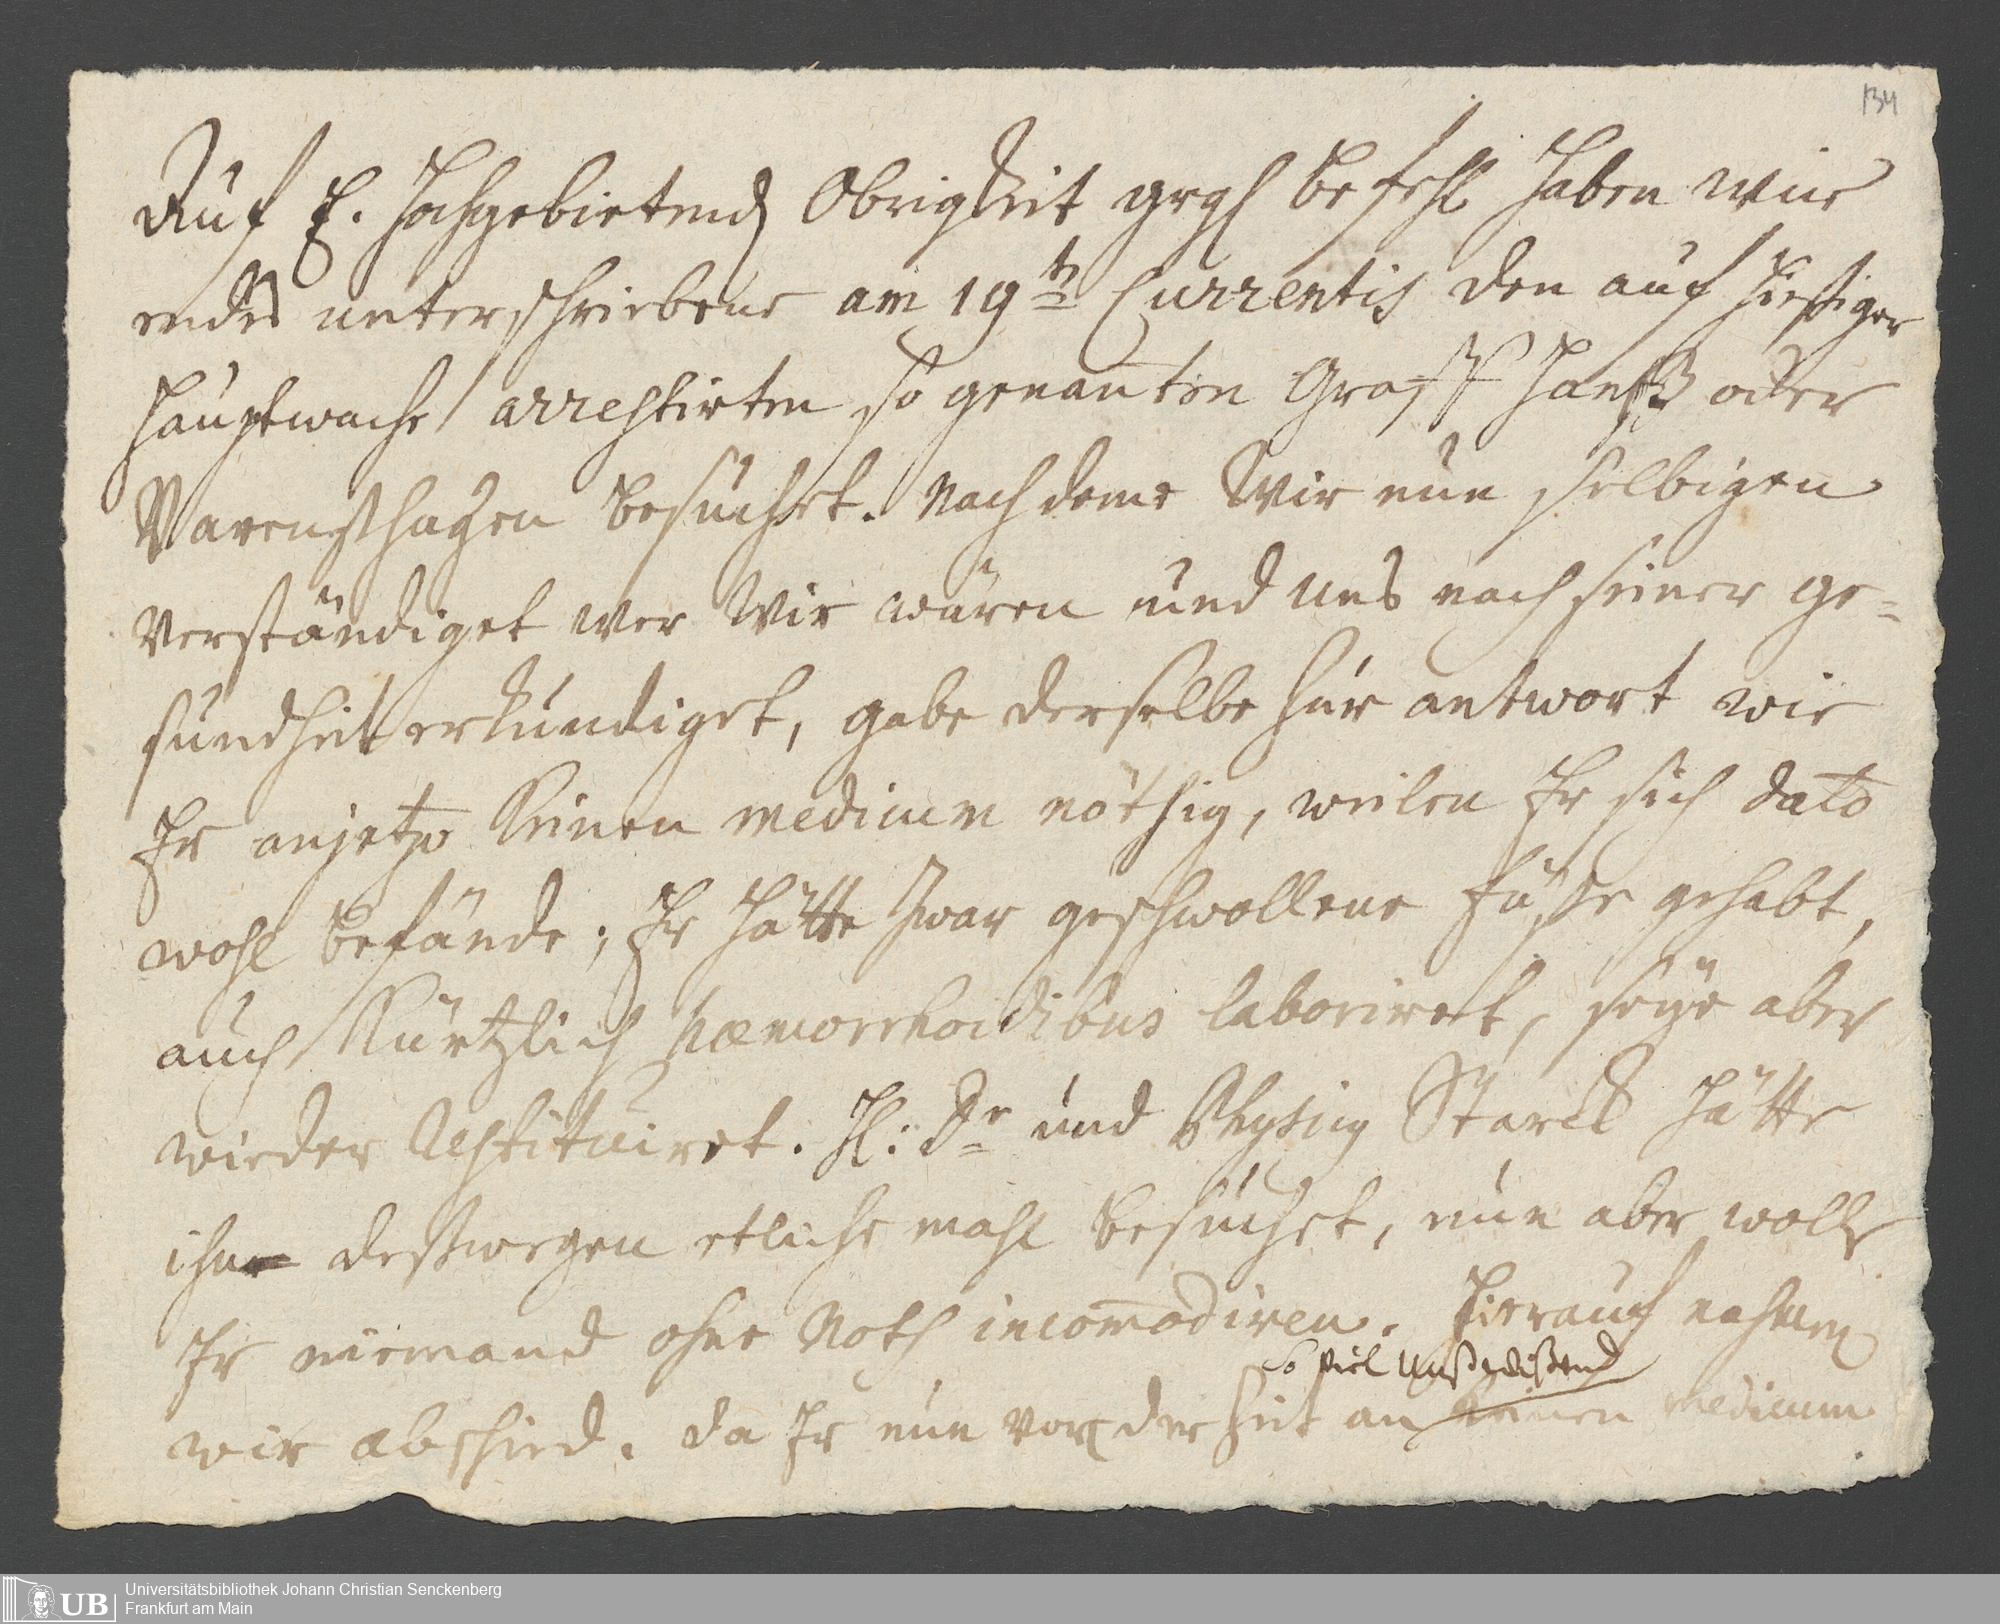 134
Auf E. Hochgebietend Obrigkeit Befehl haben wir
endes unterschriebene am 19ten Currentis den auf hiesiger
Hauptwache arrestirten so genanten Graff Hanß oder
Varensthagen besuchet. Nachdeme Wir nun selbigen
verständiget wer Wir wären und uns nach seiner ge-
sundheit erkundiget, gabe derselbe für antwort wie
Er anjetzo keinen medicum nöthig, weilen Er sich dato
wohl befände; Er hätte zwar geschwollene Füße gehabt,
auch kürtzlich hæmorrhoidibus laboriret, seye aber
wieder restituiret. H: Dr und Physicus Starck hätte
ihne deßwegen etliche mahl besuchet, nun aber wolle
Er niemand ohne Noth incomodiren. Hierauf nahmen
so viel Unß wißend
wir abschied. Da Er nun vor der Zeit an keinen medicum
UB
Universitätsbibliothek Johann Christian Senckenberg
Frankfurt am Main